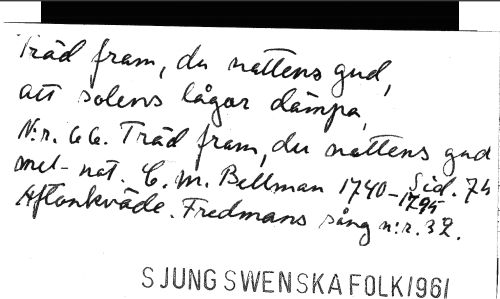 Träd fram, du nattens gud,
att solens lågor dämpa,
N:r. 66. Träd fram, du nattens gud
mel- not. C. M. Bellman 1740-1795 Sid. 76
Aftonkväde. Fredmans sång n:r. 32.
SJUNG SWENSKA FOLK 1961